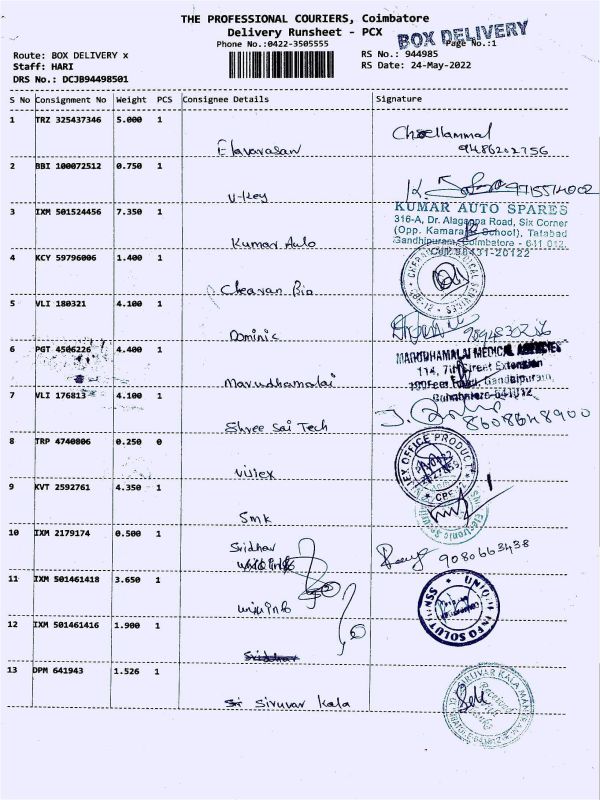 THE PROFESSIONAL COURIERS, Coimbatore
Delivery Runsheet - PCX
BOX DELIVERY
Phone No.:0422-3505555
Page No.:1
Route: BOX DELIVERY x
RS No.: 944985
Staff: HARI
RS Date: 24-May-2022
DRS No.: DCJB94498501
S No Consignment No Weight PCS Consignee Details Signature
1 TRZ 325437346 5.000 1
Elavarasan
Chellammal
9486202756
2 BBI 100072512 0.750 1
V-Key
3 IXM 501524456 7.350 1
Kumar Auto
KUMAR AUTO SPARES
316-A, Dr. Alagappa Road, Six Corner
(Opp. Kamaraj School), Tatabad
Gandhipuram, Coimbatore - 641 012.
4 KCY 59796006 1.400 1
Cheavan Bio
5 VLI 180321 4.100 1
Dominic
6 PGT 4506226 4.400 1
Marudhamalai
MARUDHAMALAI MEDICAL AGENCIES
114, 7th Street Extension
100Feet Road, Gandhipuram,
Coimbatore-641012
7 VLI 176813 4.100 1
Shree Sai Tech
8608648900
8 TRP 4740806 0.250 0
Villex
9 KVT 2592761 4.350 1
SMK
10 IXM 2179174 0.500 1
Sridhar
9080663438
11 IXM 501461418 3.650 1
UNIQ INFO SOLUTIONS
12 IXM 501461416 1.900 1
Sridhar
13 DPM 641943 1.526 1
Siruvar Kala